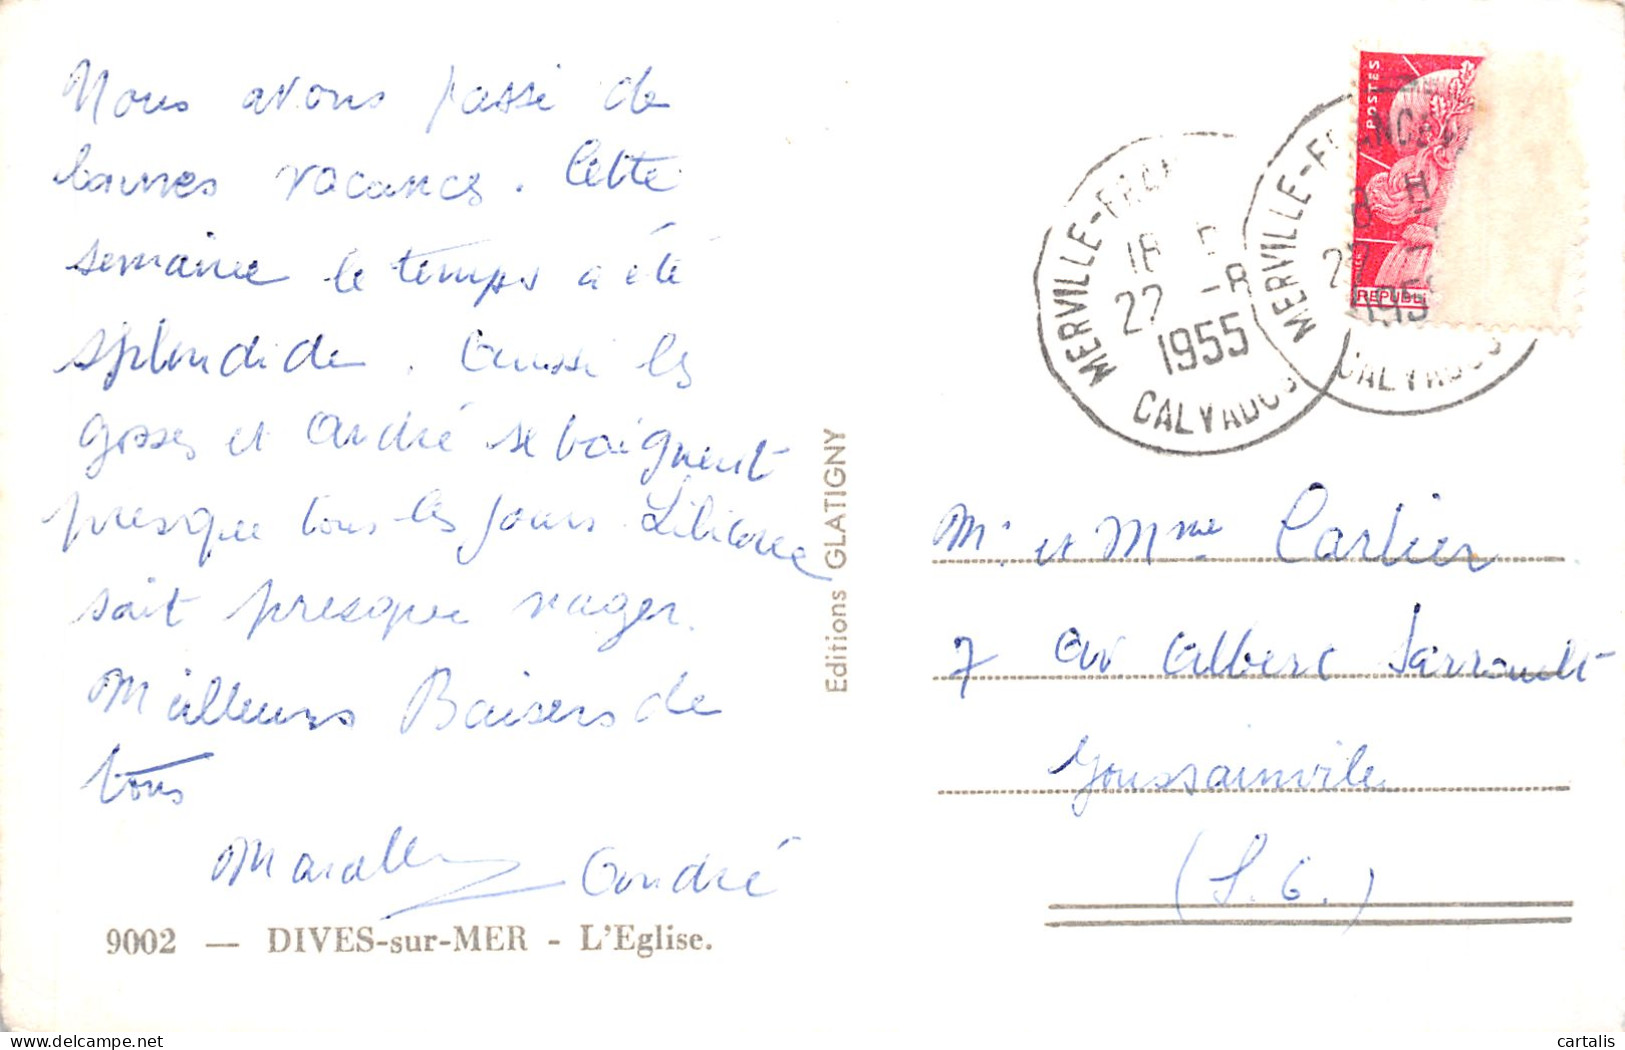 Nous avons passé de
bonnes vacances. Cette
semaine le temps a été
splendide. Aussi les
gosses et André se baignent
presque tous les jours. Liliane
sait presque nager.
Meilleurs Baisers de
tous
André
9002 — DIVES-sur-MER - L'Eglise.
Editions GLATIGNY
MERVILLE-FRAN
18 H
27 -8
1955
CALVADOS
MERVILLE-FRANCEV
8 H
27
195
CALVADOS
POSTES
REPUBLI
Mr et Mme Carlier
7 av Albert Sarrault
Goussainville
(S. O.)
cartalis.com